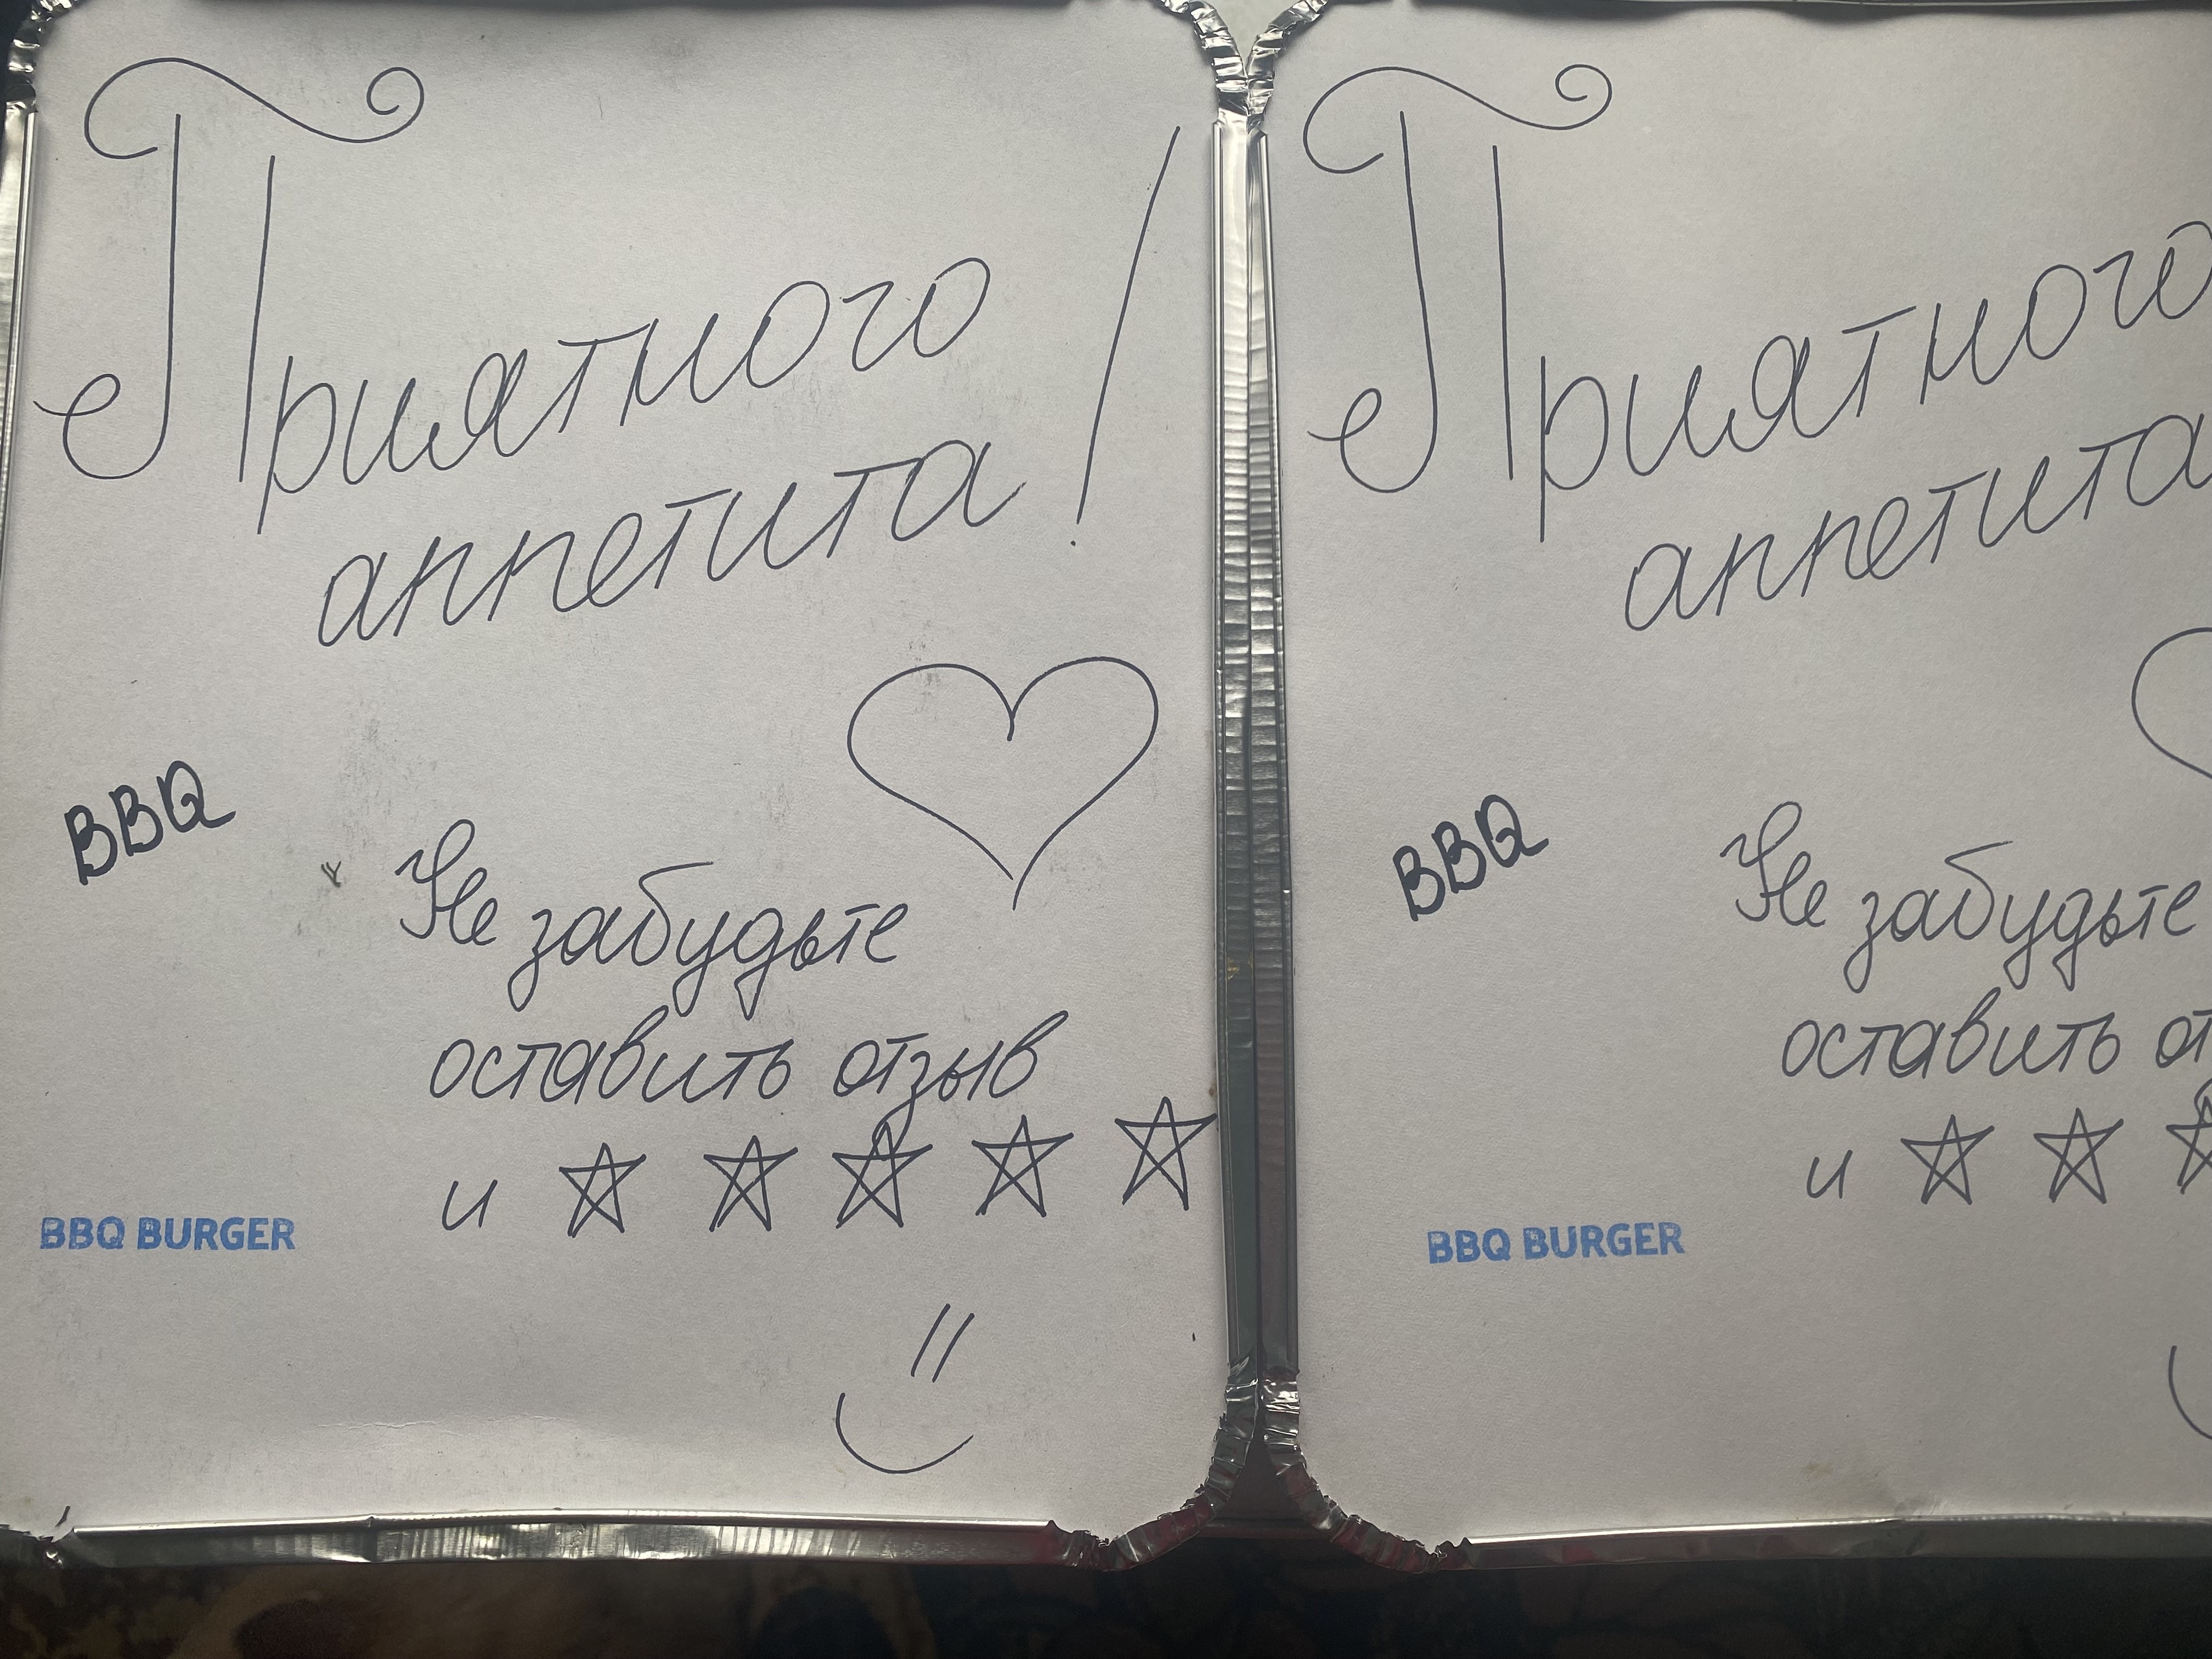 Приятного
аппетита!
BBQ
Не забудьте
оставить отзыв
и
BBQ BURGER
Приятного
аппетита
BBQ
Не забудьте
оставить от
и
BBQ BURGER